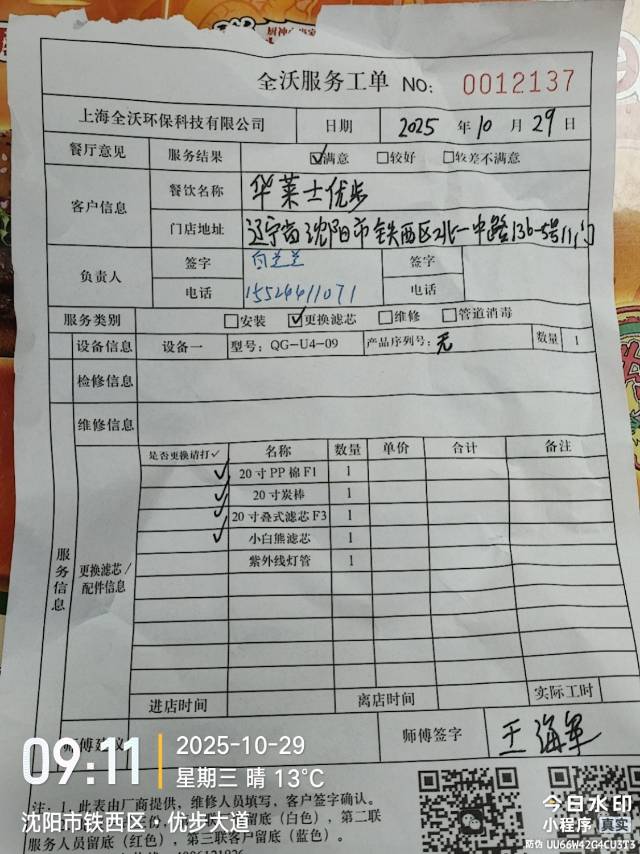 全沃服务工单 NO: 0012137
上海全沃环保科技有限公司 日期 2025 年 10 月 29 日
餐厅意见 服务结果 ☑满意 □较好 □较差不满意
客户信息 餐饮名称 华莱士优步
门店地址 辽宁省沈阳市铁西区北一中路136-5号11门
负责人 签字 白兰兰 签字
电话 15524411071 电话
服务类别 □安装 ☑更换滤芯 □维修 □管道消毒
设备信息 设备一 型号: QG-U4-09 产品序列号: 无 数量 1
检修信息
维修信息
服务信息
更换滤芯/配件信息
是否更换请打✓ 名称 数量 单价 合计 备注
✓ 20寸PP棉F1 1
✓ 20寸炭棒 1
✓ 20寸叠式滤芯F3 1
✓ 小白熊滤芯 1
紫外线灯管 1
进店时间 离店时间 实际工时
师傅建议 师傅签字 王海军
09:11 2025-10-29
星期三 晴 13°C
沈阳市铁西区·优步大道
注: 1、此表由厂商提供, 维修人员填写, 客户签字确认。
留底（白色）、第二联
服务人员留底（红色）、第三联客户留底（蓝色）。
今日水印
小程序 真实
防伪 UU66W42G4CU3T3